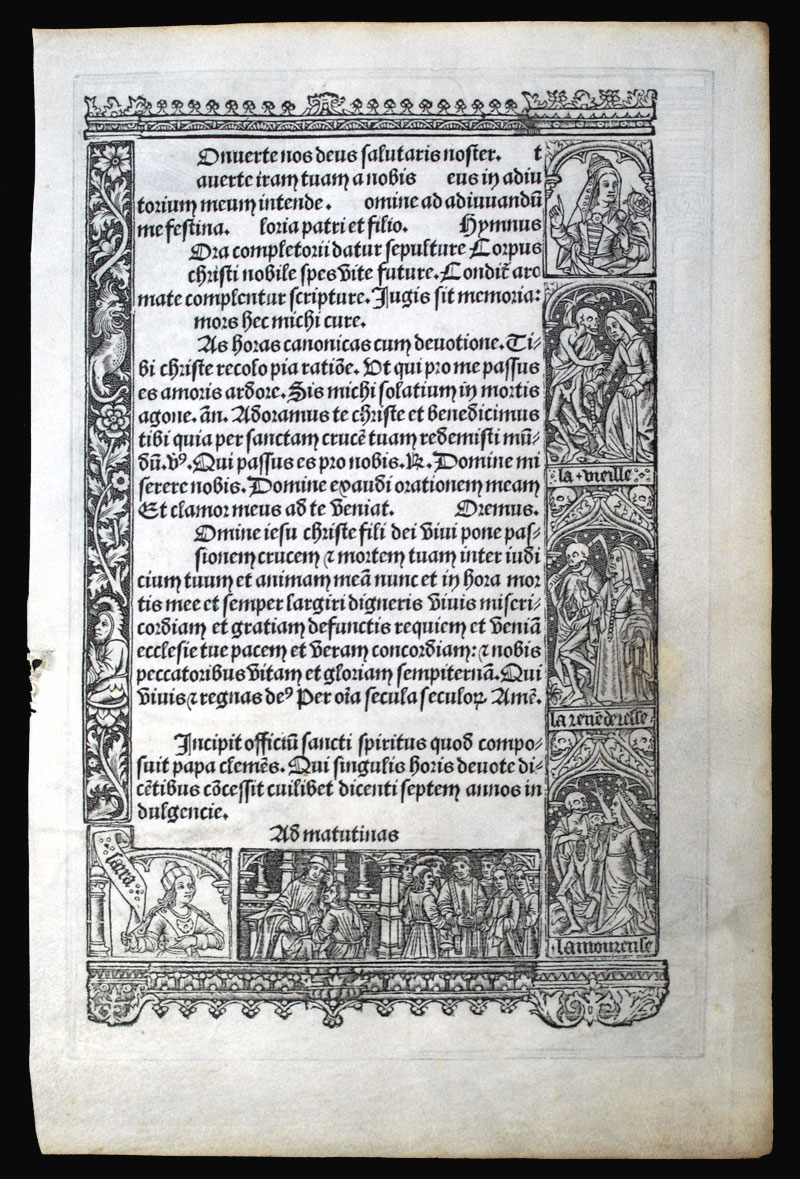 Onuerte nos deus salutaris noster. t
auerte iram tuam a nobis eus in adiu
torium meum intende. omine ad adiuuandũ
me festina. loria patri et filio. Hymnus
Ora completorii datur sepulture Corpus
christi nobile spes vite future. Condit̃ aro
mate complentur scripture. Iugis sit memoria:
mors hec michi cure.
As horas canonicas cum deuotione. Ti-
bi christe recolo pia ratiõe. Vt qui pro me passus
es amoris ardore. Sis michi solatium in mortis
agone. añ. Adoramus te christe et benedicimus
tibi quia per sanctam crucẽ tuam redemisti mũ-
dũ. vꝰ. Qui passus es pro nobis. ℟. Domine mi
serere nobis. Domine exaudi orationem meam
Et clamor meus ad te veniat. Oremus.
Omine iesu christe fili dei viui pone pas-
sionem crucem ⁊ mortem tuam inter iudi
cium tuum et animam meã nunc et in hora mor
tis mee et semper largiri digneris viuis miseri-
cordiam et gratiam defunctis requiem et veniã
ecclesie tue pacem et veram concordiam: ⁊ nobis
peccatoribus vitam et gloriam sempiternã. Qui
viuis ⁊ regnas deꝰ Per oĩa secula seculoꝝ. Amẽ.
Incipit officiũ sancti spiritus quod compo-
suit papa clemẽs. Qui singulis horis deuote di-
cẽtibus cõcessit cuilibet dicenti septem annos in
dulgencie.
Ad matutinas
la vieille
la reuẽderesse
lamoureuse